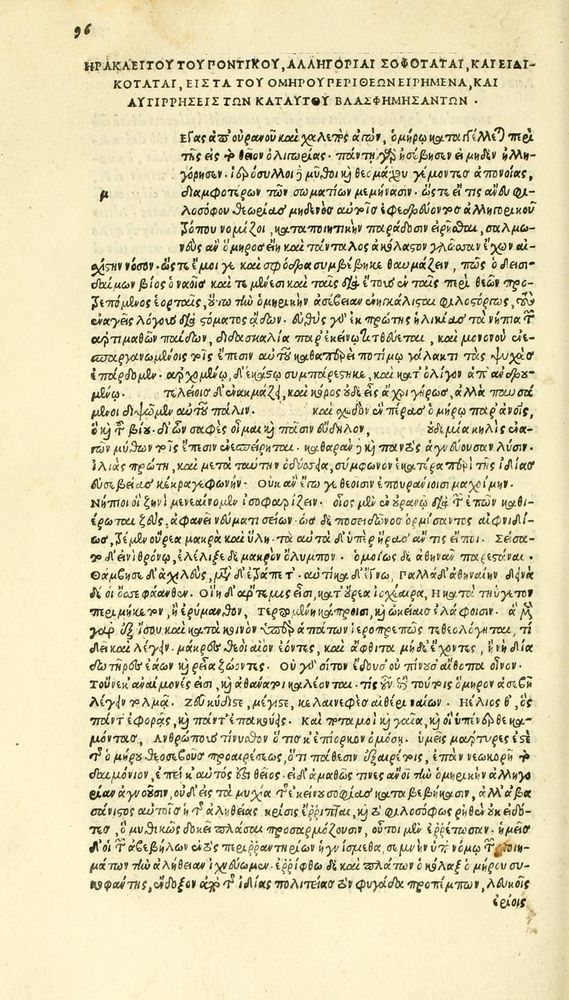 96
ΗΡΑΚΛΕΙΤΟΥ ΤΟΥ ΠΟΝΤΙΚΟΥ, ΑΛΛΗΓΟΡΙΑΙ ΣΟΦΟΤΑΤΑΙ, ΚΑΙ ΕΙΔΙ-
ΚΟΤΑΤΑΙ, ΕΙΣ ΤΑ ΤΟΥ ΟΜΗΡΟΥ ΠΕΡΙ ΘΕΩΝ ΕΙΡΗΜΕΝΑ, ΚΑΙ
ΑΥΤΙΡΡΗΣΕΙΣ ΤΩΝ ΚΑΤ ΑΥΤΟΥ ΒΛΑΣΦΗΜΗΣΑΝΤΩΝ.
Εγας ἀπ' οὐρανοῦ καὶ χαλεπὸς ἀγὼν, ὁμήρῳ καταγγέλλεται περὶ
τῆς εἰς τὸ θεῖον ὀλιγωρίας. πάντῃ γὰρ ἠσέβησεν εἰ μηδὲν ἠλλη-
γόρησεν. ἱερόσυλοι δὲ μῦθοι καὶ θεομάχου γέμοντες ἀπονοίας,
μ
δι' ἀμφοτέρων τῶν σωματίων μεμήνασιν. ὥστε εἴ τις ἄνευ φι-
λοσόφου θεωρίας μηδενὸς αὐτοῖς ἐφεδρεύοντος ἀλληγορικοῦ
τρόπου νομίζοι, κατὰ ποιητικὴν παράδοσιν εἰρῆσθαι, σαλμω-
νεὺς ἂν ὅμηρος εἴη καὶ τάνταλος ἀκόλαστον γλῶσσαν ἔχων αἰ-
σχίστην νόσον. ὥστε ἔμοιγε καὶ σφόδρα συμβέβηκε θαυμάζειν, πῶς ὁ δεισι-
δαίμων βίος ὁ ναοῖς καὶ τεμένεσι καὶ ταῖς δι' ἔτους ἐν ταῖς περὶ θεῶν προ-
τρεπόμενος ἑορταῖς, οὕτω τὴν ὁμηρικὴν ἀσέβειαν ἐνηγκάλισται φιλοστόργως, τοὺς
ἐναγεῖς λόγους διὰ στόματος ᾄδων. εὐθὺς γὰρ ἐκ πρώτης ἡλικίας τὰ νήπια τῶν
ἀρτιμαθῶν παίδων, διδασκαλίᾳ παρ' ἐκείνῳ τιθεύεται, καὶ μονονοὺ ἐνε-
σπαργανωμένοις τοῖς ἔπεσιν αὐτοῦ καθαπερεὶ ποτίμῳ γάλακτι τὰς ψυχὰς
ἐπάρδομεν. ἀρχομένῳ, δ' ἑκάστῳ συμπαρέστηκε, καὶ κατ' ὀλίγον ἀπανδρου-
μένῳ. τελείοις δ' ἐνακμάζει, καὶ κόρος οὐδεὶς ἄχρι γήρως, ἀλλὰ παυσά
μενοι διψῶμεν αὐτοῦ πάλιν. καὶ σχεδὸν ἓν πέρας ὁμήρῳ παρ' ἀνθρώποις,
ὃ καὶ τοῦ βίου. δι' ὧν σαφὲς οἶμαι καὶ πᾶσιν εὔδηλον, οὐδεμία κηλὶς ἐνα-
γῶν μύθων τοῖς ἔπεσιν ἐνεσπείρηται. καθαρὰν δὲ καὶ παντὸς ἁγνεύουσαν λύσιν.
Ἰλιὰς πρώτη, καὶ μετὰ ταύτην ὀδύσσεια, σύμφωνον ἑκατέρα περὶ τῆς ἰδίας
εὐσεβείας κέκραγε φωνήν. Οὐκ ἂν ἔγωγε θεοῖσιν ἐπουρανίοισι μαχοίμην.
Νήπιοι οἳ ζηνὶ μενεαίνομεν ἰσοφαρίζειν. οἷος μὲν ἐν οὐρανῷ διὰ τῶν ἐπῶν καθι-
έρωται ζεὺς, ἀφανεῖ νεύματι σείων. ὡς δὲ ποσειδῶνος ὁρμήσαντος αἰφνιδί-
ως, τρέμ' οὔρεα μακρὰ καὶ ὕλη. τὰ αὐτὰ δ' ὑπὲρ ἥρας ἄν τις εἴποι. Σείσα-
το δ' εἰνὶ θρόνῳ, ἐλέλιξε δὲ μακρὸν ὄλυμπον. ὁμοίως δὲ ἀθηνᾶν παρεστάναι.
Θάμβησε δ' ἀχιλεὺς, μετὰ δ' ἐτράπετ'. αὐτίκα δ' ἔγνω, Παλλάδ' ἀθηναίην δεινὼ
δέ οἱ ὄσσε φάανθεν. Οἵη δ' ἄρτεμις εἶσι, κατ' οὔρεα ἰοχέαιρα, Ἢ κατὰ τηΰγετον
περιμήκετον, ἢ ἐρύμανθον, Τερπομένη κάπροισι, καὶ ὠκείαις ἐλάφοισιν. ἃ μὲν
γὰρ ἐξ ἴσου καὶ κατὰ κοινὸν ὑπὲρ ἁπάντων ἱεροπρεπῶς τεθεολόγηται, τί
δεῖ καὶ λέγειν. μάκαρες θεοὶ αἰὲν ἐόντες, καὶ ἄφθιτα μήδε' ἔχοντες, ἢ νὴ δία
δωτῆρες ἐάων καὶ ῥεῖα ζώοντες. Οὐ γὰρ σῖτον ἔδουσ' οὐ πίνουσ' αἴθοπα οἶνον.
Τοὔνεκ' ἀναίμονές εἰσι, καὶ ἀθάνατοι καλέονται. τίς οὖν ἐπὶ τούτοις ὅμηρον ἀσεβῆ
λέγειν τολμᾷ. Ζεῦ κύδιστε, μέγιστε, κελαινεφὲς αἰθέρι ναίων. Ἥλιος θ', ὃς
πάντ' ἐφορᾷς, καὶ πάντ' ἐπακούεις. Καὶ ποταμοὶ καὶ γαῖα, καὶ οἳ ὑπένερθε κα-
μόντας, Ἀνθρώπους τίνυσθον ὅτις κ' ἐπίορκον ὀμόσῃ. ὑμεῖς μάρτυρες ἔστε
τῆς ὁμήρου θεοσεβοῦς προαιρέσεως, ὅτι πάθεσιν ἐξαιρέτοις, ἐπᾶν νεωκορεῖ τὸ
δαιμόνιον, ἐπεὶ κ' αὐτός ἐστι θεῖος. εἰ δ' ἀμαθῶς τινὲς ἄνθρωποι τὴν ὁμηρικὴν ἀλληγο
ρίαν ἀγνοοῦσιν, οὐδ' εἰς τὰ μυχία τῆς ἐκείνου σοφίας καταβεβήκασιν, ἀλλ' ἀβα
σάνιστος αὐτοῖς ἡ τῆς ἀληθείας κρίσις ἔρριπται, καὶ τὸ φιλοσόφως ῥηθὲν οὐκ εἰδό-
τες, ὃ μυθικῶς δοκεῖ πλάσαι προσαρμόζουσιν, οὗτοι μὲν ἐρρέτωσαν. ἡμεῖς
δ' οἳ τῶν ἀβεβήλων ἐντὸς περιρραντηρίων ἡγνίσμεθα, σεμνὴν ὑπὸ νόμῳ τῶν ποιη-
μάτων τὴν ἀλήθειαν ἰχνεύωμεν. ἐρρίφθω δὲ καὶ πλάτων ὁ κόλαξ ὁμήρου συ-
κοφάντης, ἔνδοξον ἀπὸ τῆς ἰδίας πολιτείας τὸν φυγάδα προπέμπων, λευκοῖς
ἐρίοις